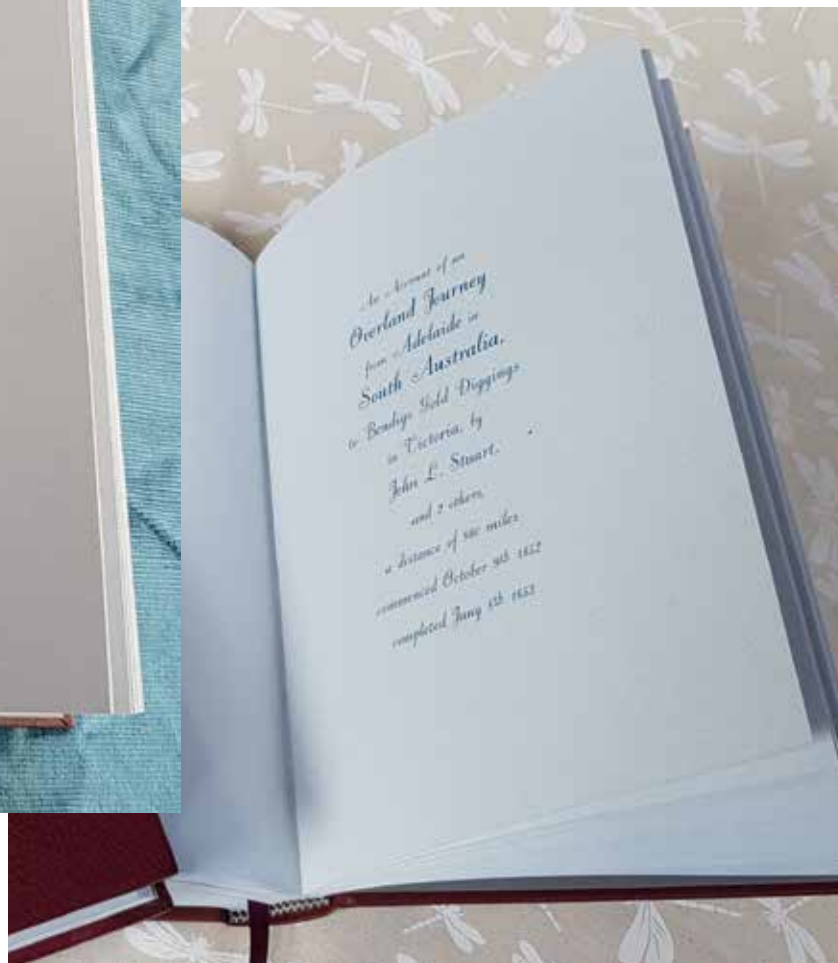 An Account of an
Overland Journey
from Adelaide in
South Australia,
to Bendigo Gold Diggings
in Victoria, by
John L. Stuart,
and 2 others,
a distance of 500 miles
commenced October 9th 1852
completed Jany 5th 1853